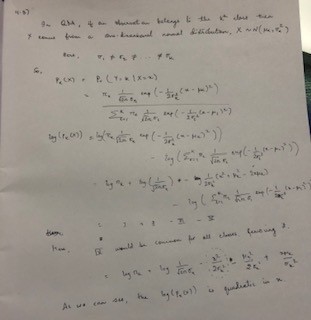 4.3)
In QDA, if an observation belongs to the kth class then
X comes from a one-dimensional normal distribution, X ~ N(μk, σk²)
Here, σ1 ≠ σ2 ≠ ... ≠ σk
So,
Pk(x) = Pr(Y=k | X=x)
= πk 1/(√2π σk) exp(-1/2σk² (x-μk)²)
Σ πl 1/(√2π σl) exp(-1/2σl² (x-μl)²)
log(Pk(x)) = log(πk 1/(√2π σk) exp(-1/2σk² (x-μk)²))
- log(Σ πl 1/(√2π σl) exp(-1/2σl² (x-μl)²))
= log πk + log(1/(√2π σk)) - 1/2σk² (x² + μk² - 2xμk)
- log(Σ πl 1/(√2π σl) exp(-1/2σl² (x-μl)²))
would be common for all classes,
= log πk + log 1/(√2π σk) - x²/2σk² - μk²/2σk² + xμk/σk²
As we can see, the log(Pk(x)) is quadratic in x.